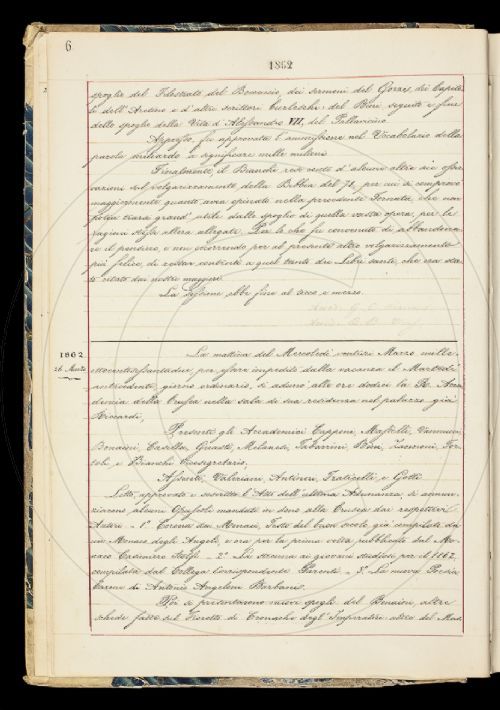 6
1862
spoglio del Filostrato del Boccaccio, dei sermoni del Gozzi, dei Capito-
li dell'Aretino e d'altri scrittori burleschi; del Buti seguito e fine
dello spoglio della Vita d'Alessandro VII, del Pallavicino.
Appresso, fu approvata l'ammissione nel Vocabolario della
parola miliardo a significare mille milioni.
Finalmente, il Bianchi rese conto d'alcune altre sue osser-
vazioni sul volgarizzamento della Bibbia del 71, per cui si comprova
maggiormente quanto avea opinato nella precedente Tornata, che non
potea trarsi grand'utile dallo spoglio di quella vasta opera, per la
ragioni stesse allora allegate. Per lo che fu convenuto di abbandonar-
ne il pensiero, e non occorrendo per al presente altro volgarizzamento
più felice, di restar contenti a quel tanto dei Libri santi, che era sta-
to citato dai nostri maggiori.
La Sessione ebbe fine al tocco e mezzo.
1862
26 Marzo
La mattina del Mercoledì ventisei Marzo mille-
ottocentosessantadue, per essere impedito dalla vacanza il Martedì
antecedente, giorno ordinario, si adunò alle ore dodici la R. Acca-
demia della Crusca nella sala di sua residenza nel palazzo già
Riccardi,
Presenti gli Accademici Capponi, Mastelli, Vannucci,
Bonaini, Casella, Guasti, Milanesi, Tabarrini, Bini, Zannoni, For-
toli, e Bianchi Vicesegretario.
Assenti, Valeriani, Antinori, Fraticelli e Gotti.
Letto, approvato e soscritto l'Atto dell'ultima Adunanza, si annun-
ziarono alcuni Opuscoli mandati in dono alla Crusca dai respettivi
Autori – 1° Corona dei Monaci, Testo del buon secolo già compilato da
un Monaco degli Angeli, e ora per la prima volta pubblicato dal Mo-
naco Casimiro Stolfi. – 2° La strenna ai giovani studiosi per il 1862,
compilata dal Collega Corrispondente Parenti – 3° La nuova Poesia
Carme di Antonio Angeloni Barbiani.
Poi si presentarono nuovi spogli del Bencini, altre
schede fatte sul Fioretto di Cronache degl'Imperatori: altre del Mas-